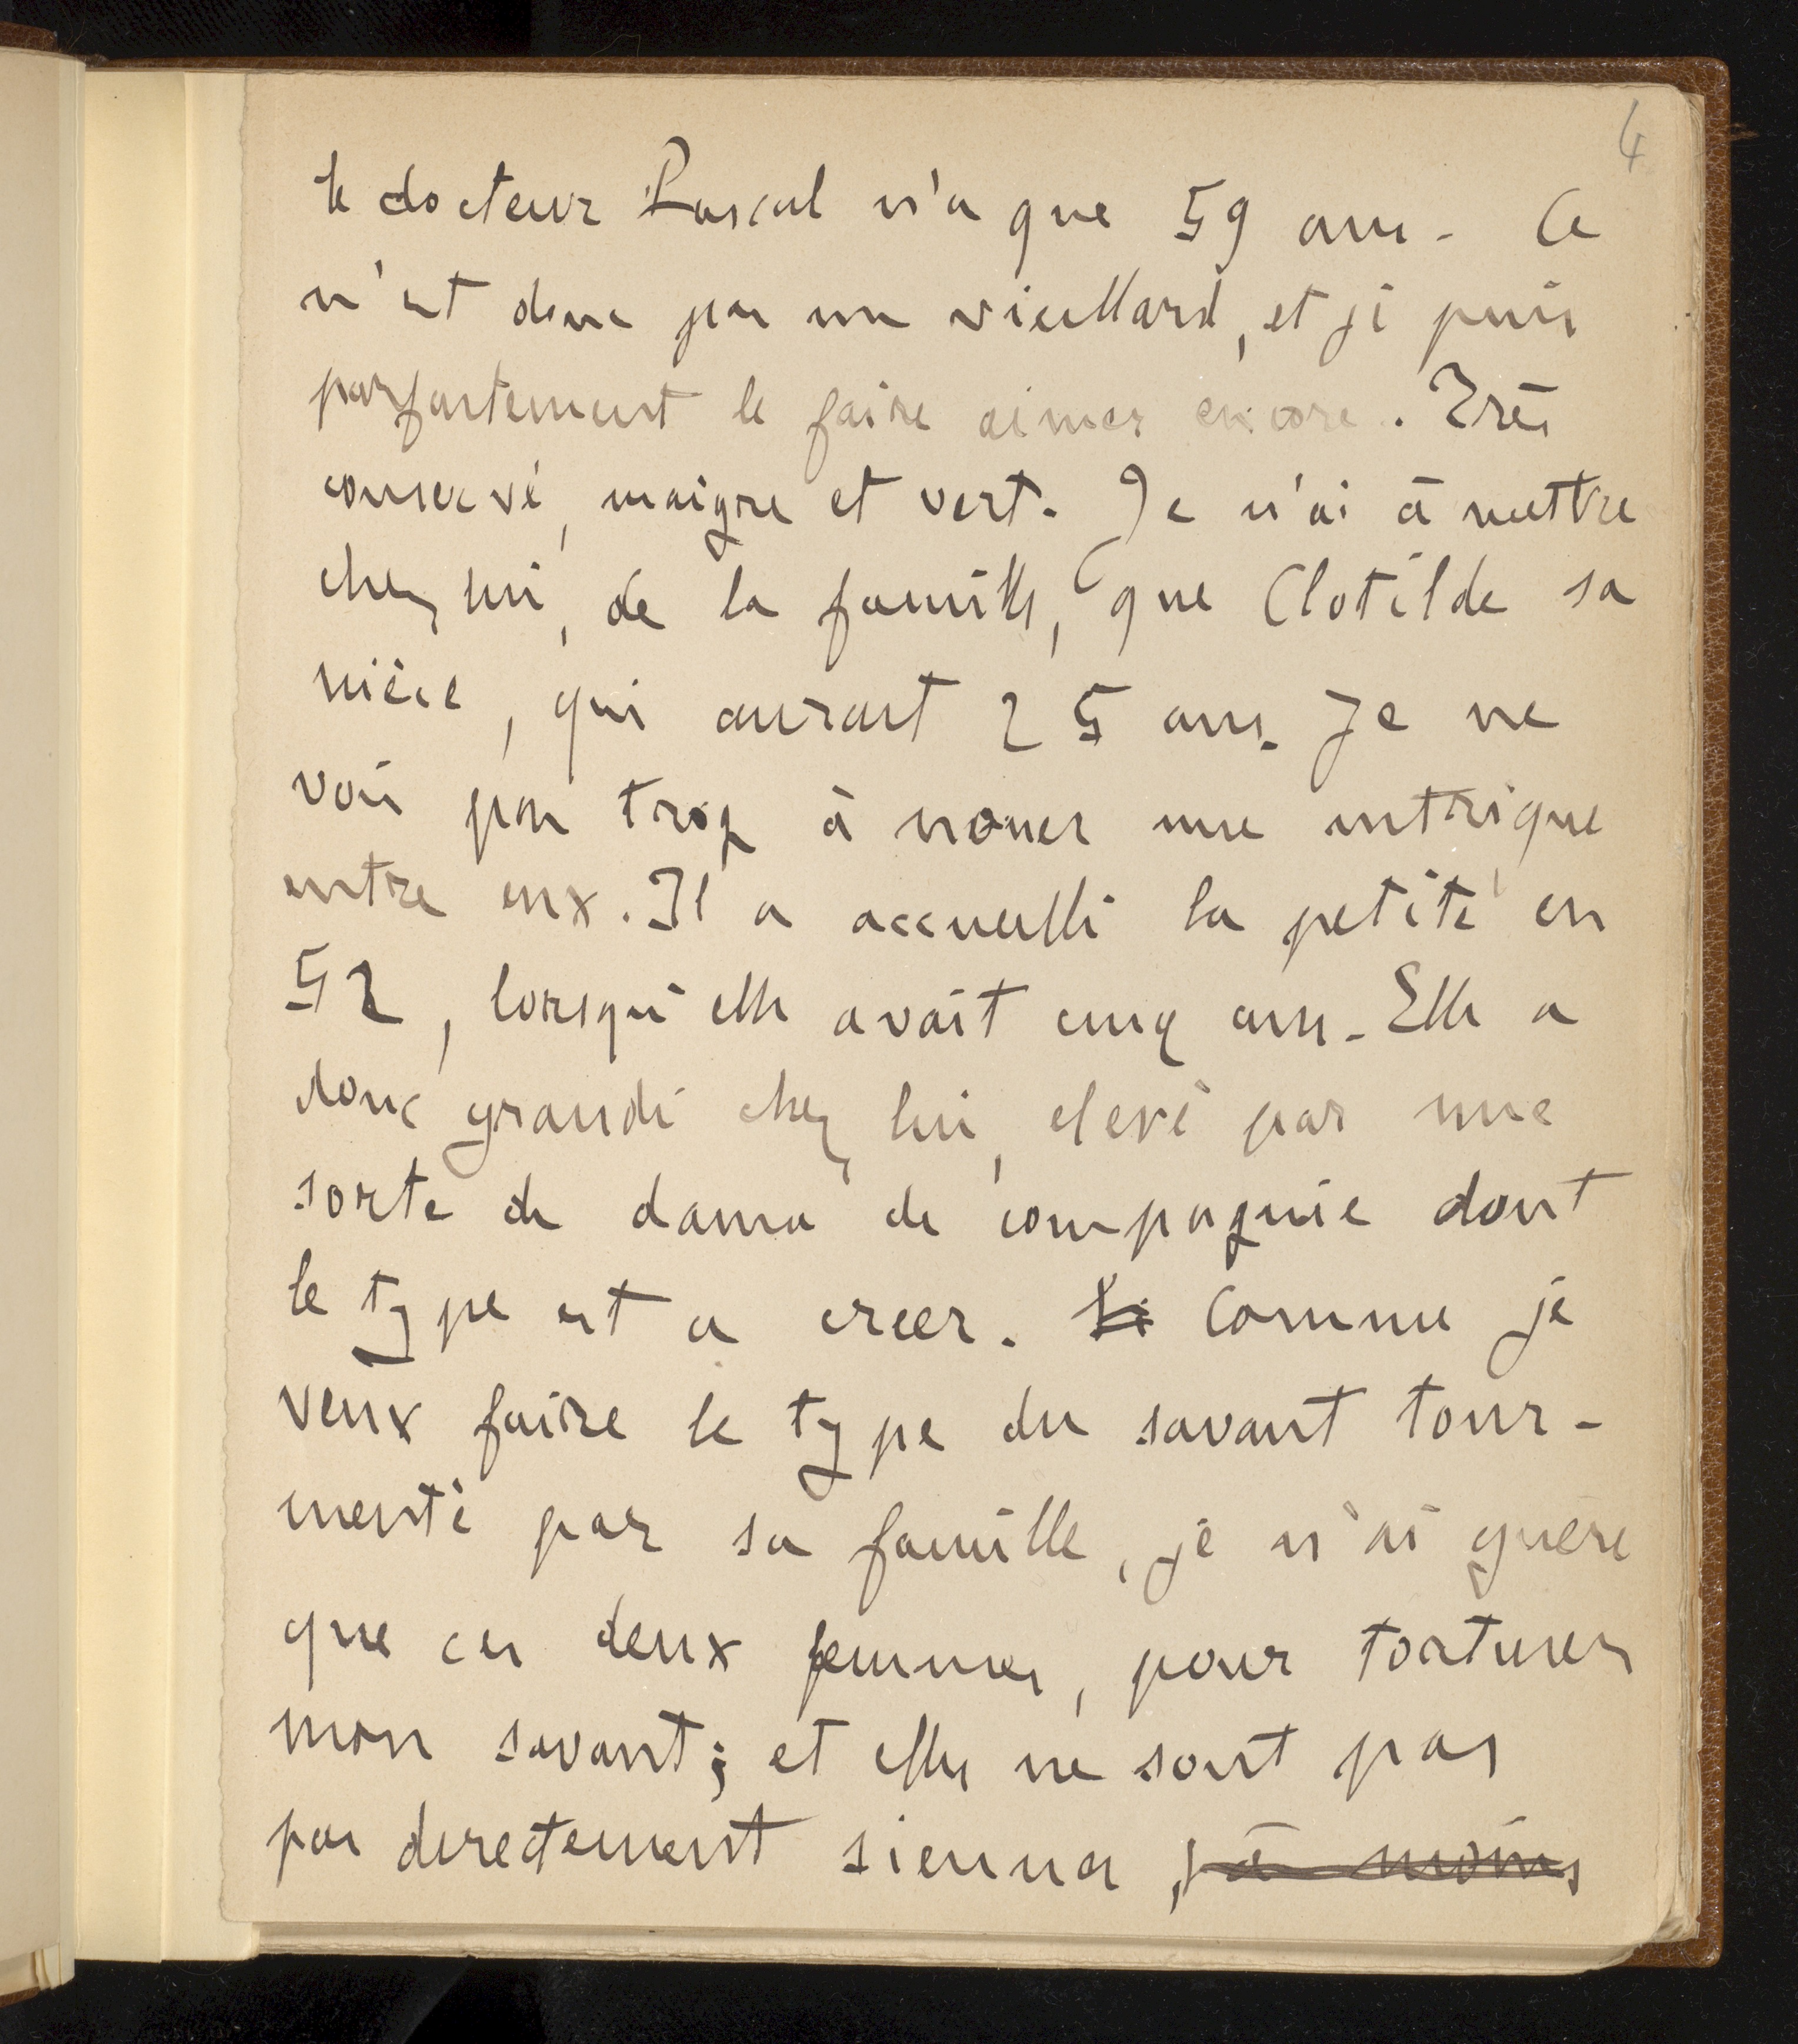 4
le docteur Pascal n'a que 59 ans. Ce
n'est donc pas un vieillard, et je puis
parfaitement le faire aimer encore. Très
conservé, maigre et vert. Je n'ai à mettre
chez lui, de la famille, que Clotilde sa
nièce, qui aurait 25 ans. Je ne
vois pas trop à nouer une intrigue
entre eux. Il a accueilli la petite en
52, lorsqu'elle avait cinq ans. Elle a
donc grandi chez lui, elevé par une
sorte de dame de compagnie dont
le type est a creer. Comme je
veux faire le type du savant tour-
menté par sa famille, je n'ai guère
que ces deux femmes, pour torturer
mon savant; et elles ne sont pas
pas directement siennes, à moins